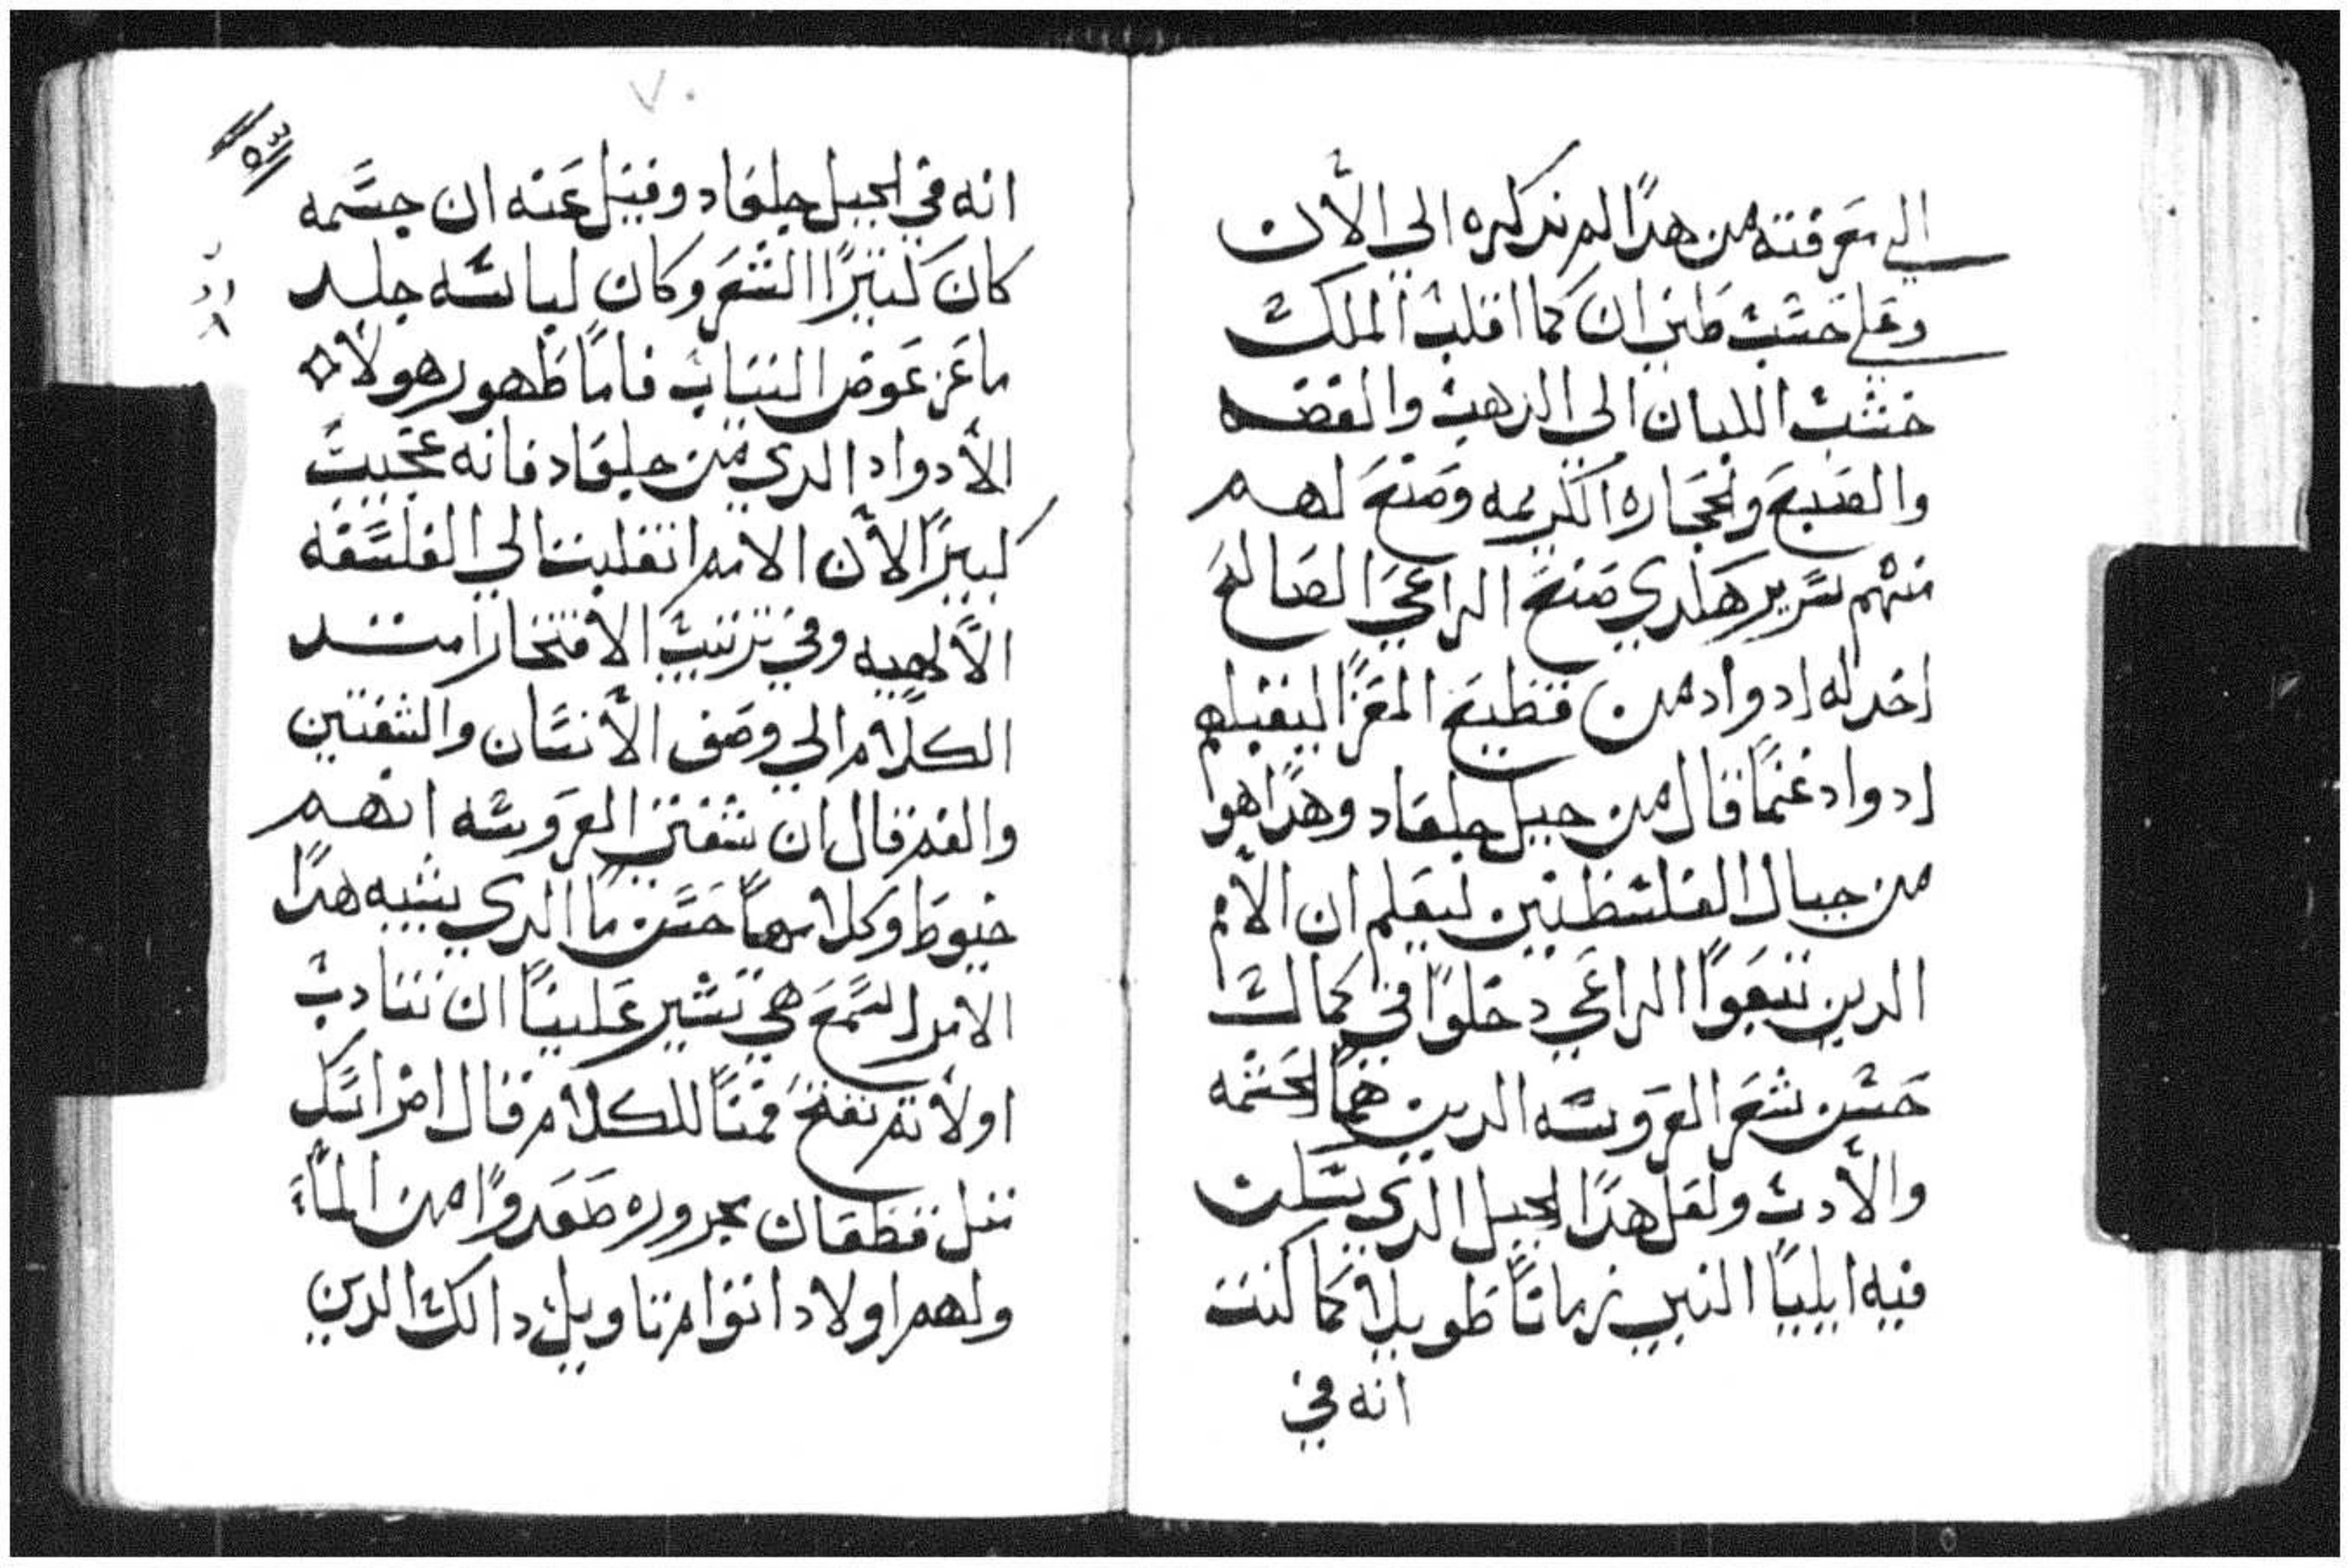 الي معرفته من هدا لم ندكره الي الأن
وعلي حسب ظني ان كما اقلب الملك
خشب اللبان الي الدهب والفضه
والصبع والحجاره الكريمه وصنع لهم
منهم سرير هكدي صنع الراعي الصالح
اخد له ادواد من قطيع المعزا ليقبلهم
ادواد غنمًا قال من جبل جلعاد وهدا هوا
من جبال الفلسطنين ليعلم ان الأمم
الدين تبعوا الراعي دخلوا في كمالت
حسن شعر العروسه الدين هما الحشمه
والأدب ولعل هدا الجبل الدي سكن
فيه ايليا النبي زمانًا طويلاً كما كتب
انه في
٧٠
انه في الجبل جلعاد وقيل عنه ان جسمه
كان كتير الشعر وكان لباسه جلد
ماعز عوض التياب فاما ظهور هولاه
الأدواد الدي من جلعاد فانه عجيب
كبيرًا لأن الامم اتقلبتا الي الفلسفه
الألهيه وفي ترتيب الافتخار امتد
الكلام الي وصف الأنسان والشفتين
والفم قال ان شفتي العروسه انهم
خيوط وكلامها حسن ما الدي يشبه هدا
الامر السمع هي تشير علينا ان نتادب
اولاً تم نفتح فمنا للكلام قال اضراسك
متل قطعان مجروره صعدوا من الماء
ولهم اولاد اتوام تاويل دالك الدين